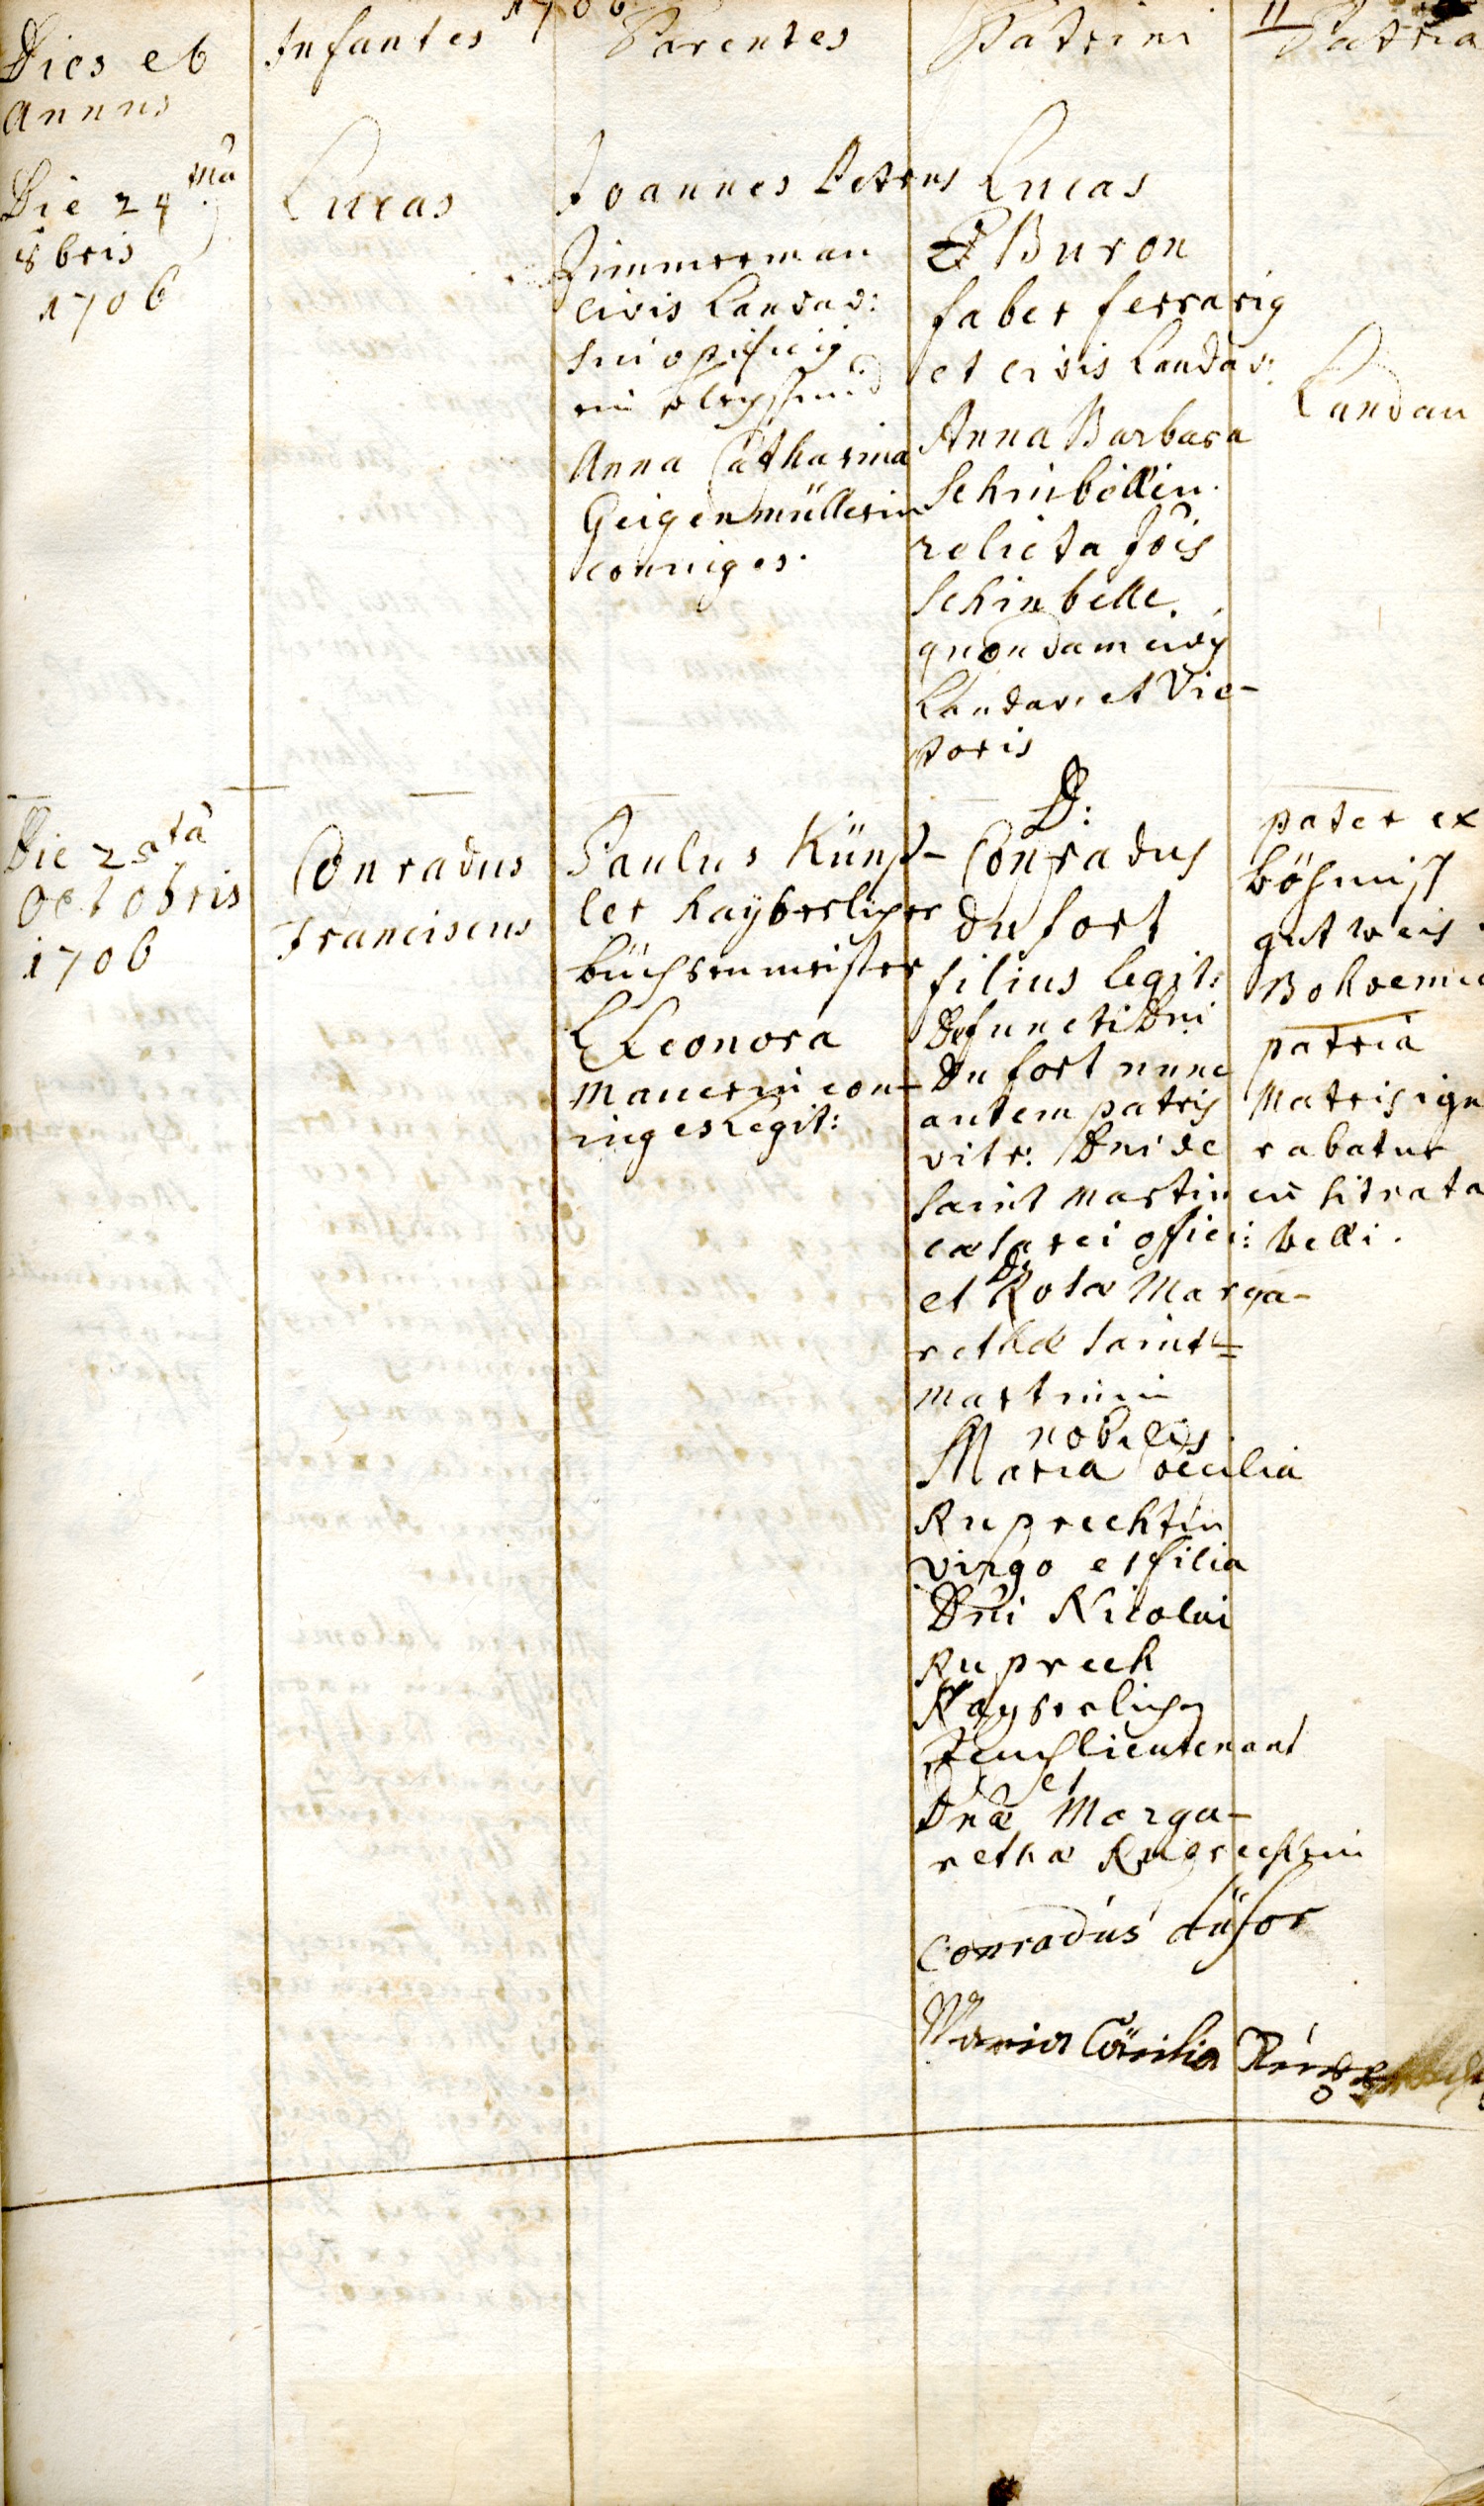 1706
11
Dies et
Annus
Infantes
Parentes
Patrini
Patria
Die 24 ma
8bris
1706
Lucas
Joannes Petrus
Zimmerman
civis Landav:
sui opificij
ein
Anna Catharina
Geigenmüllerin
coniuges.
Lucas
Buron
faber ferrarig
et civis Landav:
Anna Barbara
Schinböllin.
relicta Jois
Schinbelle.
quondam civis
Landav. et Vie-
toris
Landau
Die 25 ta
Octobris
1706
Conradus
Franciscus
Paulus Künst-
ler Kayserlicher
büchsenmeister
Eleonora
Mauerin con-
iuges Legit:
D:
Conradus
du fort
filius legit:
Defuncti Dni
Du fort nunc
autem patris
vitr: Dni de
Saint Martin
caesarei offici:
et Dae Rosae Marga-
rethae Saint=
Martinin
nobilis
Maria Coecilia
Ruprechtin
virgo et filia
Dni Nicolai
Ruprech
Kayserlicher
Zeuchlieutenant
et
Dnae Marga-
retha Ruprechtin
Conradus düfor
Maria Cäcilia
pater ex
böhmisch
gutweis
Bohoemia
patria
Matris igno
rabatur
belli.